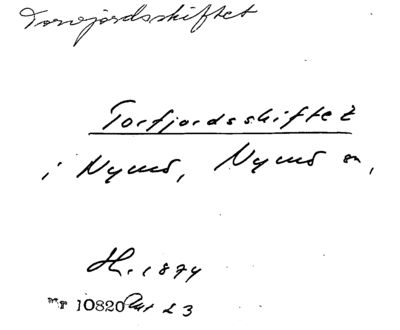 Torvjordsskiftet
Torfjordsskiftet
i Nymö, Nymö sn,
H. 1874
nr 10820 23